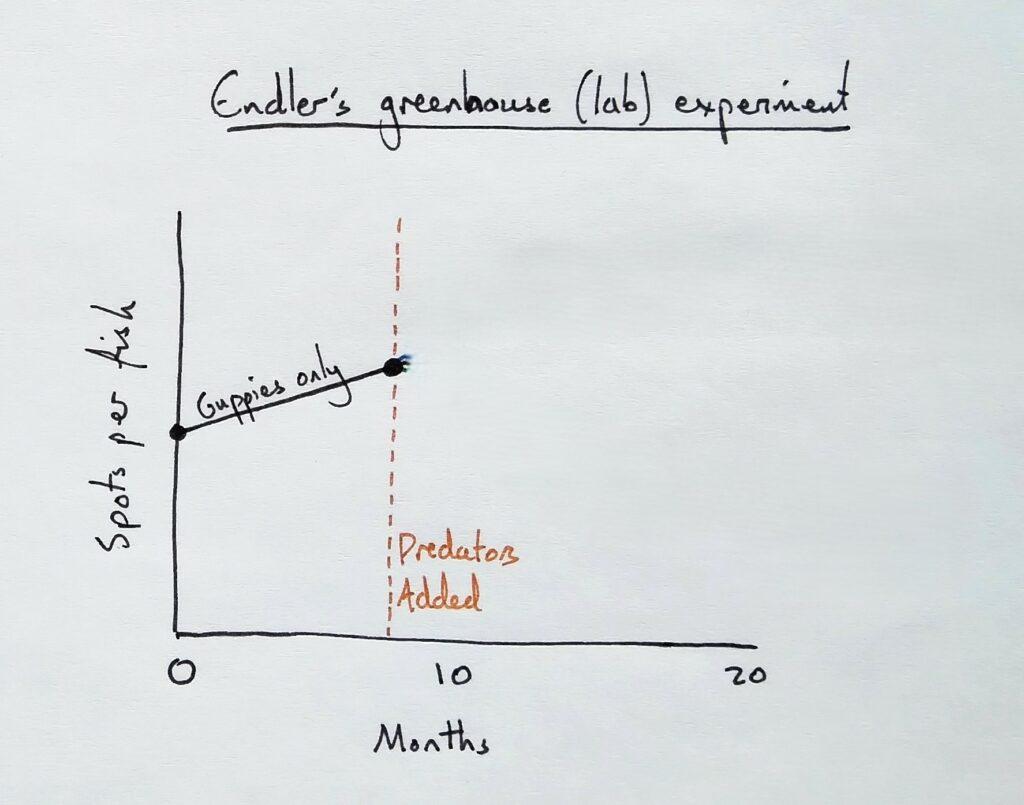 Endler's greenhouse (lab) experiment
Spots per fish
Guppies only
Predators
Added
0 10 20
Months